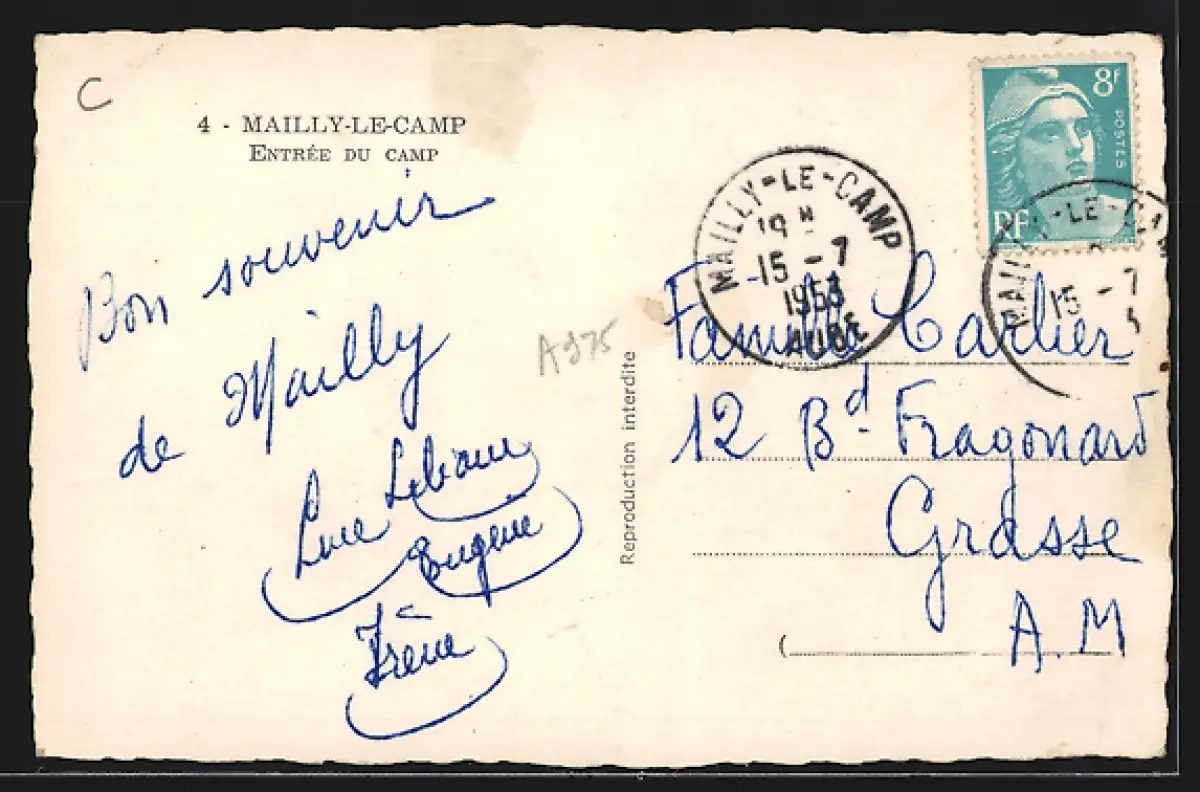 C
4 - MAILLY-LE-CAMP
ENTRÉE DU CAMP
Bon souvenir
de Mailly
Luce
Eugène
Irène
A975
Reproduction interdite
8F
POSTES
RF
MAILLY-LE-CAMP
19 H
15 - 7
1953
AUBE
MAILLY-LE-CAMP
15 - 7
Famille Carlier
12 Bd. Fragonard
Grasse
A.M